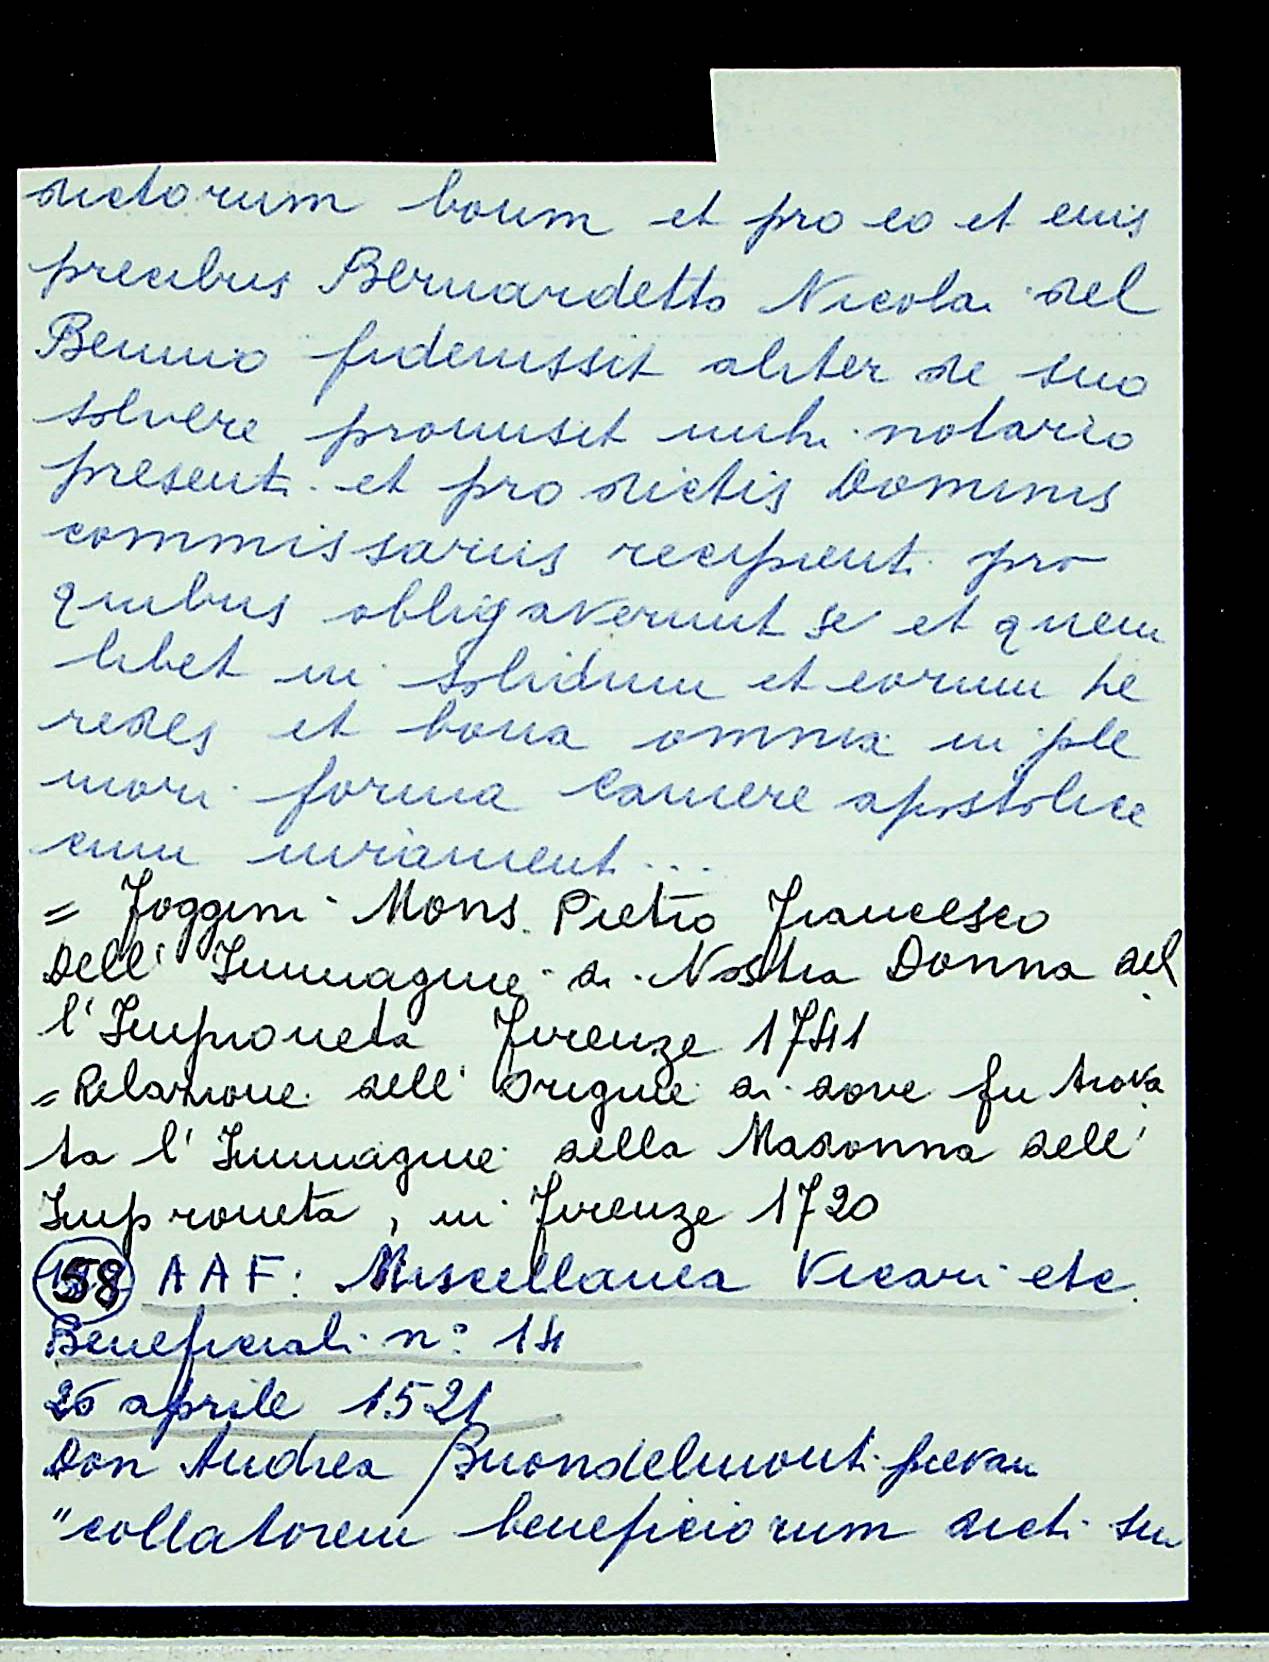 dictorum boum et pro eo et eius
precibus Bernardetto Nicolai del
Benino fideiussit aliter de suo
solvere promisit mihi notario
presenti et pro dictis Dominis
commissariis recipienti pro
quibus obligaverunt se et quem
libet in solidum et eorum he
redes et bona omnia in ple
niori forma Camere apostolice
cum iuriament...
= Foggini Mons. Pietro Francesco
Dell' Immagine di Nostra Donna del
l'Impruneta Firenze 1741
= Relazione dell' Origine di dove fu trova
ta l'Immagine della Madonna dell'
Impruneta, in Firenze 1720
58 AAF: Miscellanea Vicari etc.
Beneficiali n° 14
26 aprile 1521
Don Andrea Buondelmonti pievan
"collatorem beneficiorum dicti su